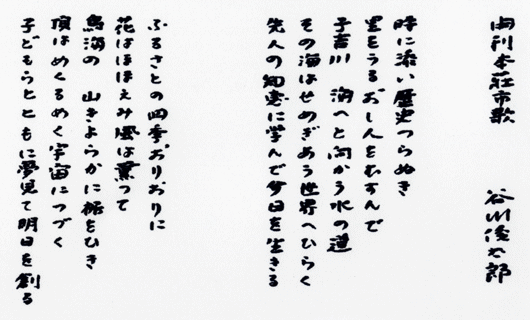 由利本荘市歌
谷川俊太郎
時に添い歴史つらぬき
里をうるおしんをむすんで
子吉川 海へと向かう水の道
その海はせめぎあう世界へひらく
先人の知恵に学んで今日を生きる
ふるさとの四季おりおりに
花はほほえみ風は薫って
鳥海の 山きよらかに裾をひき
頂はめくるめく宇宙につづく
子どもらとともに夢見て明日を創る